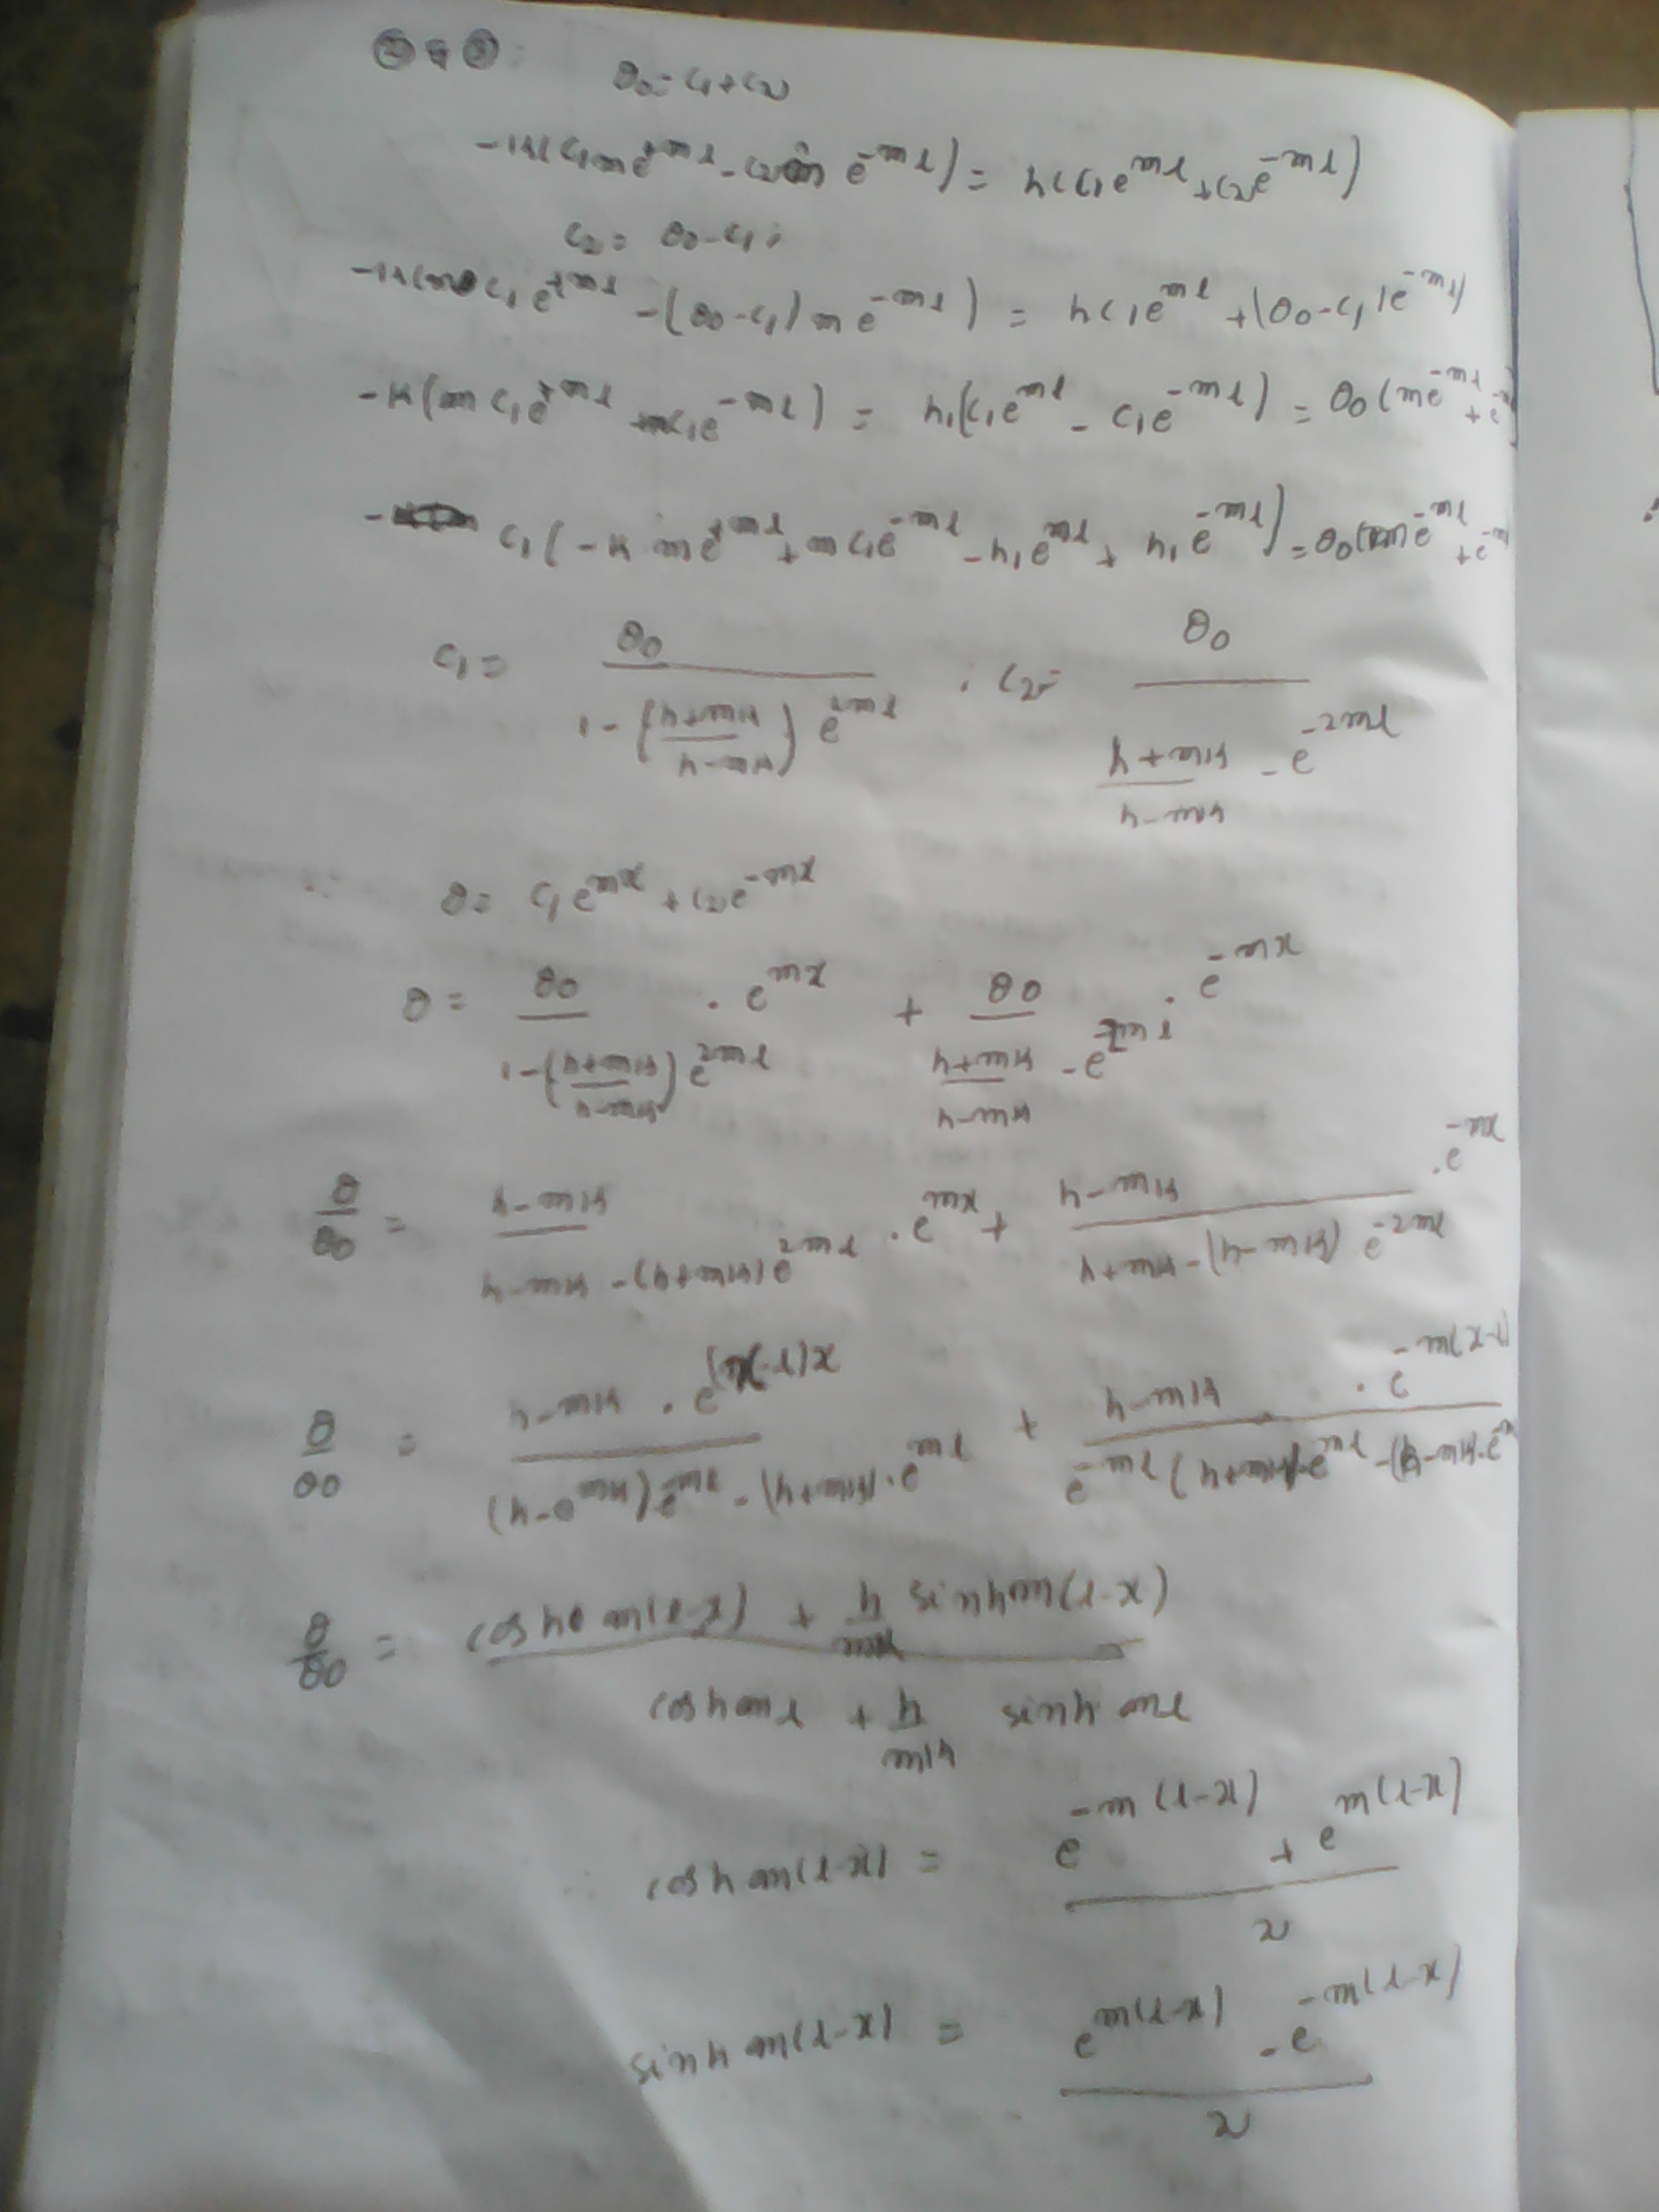 ② & ③:
θ0 = c1 + c2
-k(c1me^{+ml} - c2m e^{-ml}) = h(c1e^{ml} + c2e^{-ml})
c2 = θ0 - c1;
-k(m c1e^{+ml} - (θ0 - c1) m e^{-ml}) = hc1e^{ml} + (θ0 - c1)e^{-ml}
-k(m c1e^{+ml} + mc1e^{-ml}) = h1(c1e^{ml} - c1e^{-ml}) = θ0(me^{-ml} + e
- c1(-k me^{+ml} + mc1e^{-ml} - h1e^{ml} + h1e^{-ml}) = θ0(kme^{-ml} + e
c1 = θ0 / (1 - ((h+mk)/(h-mk)) e^{2ml}) ; c2 = θ0 / ((h+mk)/(h-mk) - e^{-2ml})
θ = c1e^{mx} + c2e^{-mx}
θ = θ0 / (1 - ((h+mk)/(h-mk)) e^{2ml}) . e^{mx} + θ0 / ((h+mk)/(h-mk) - e^{-2ml}) . e^{-mx}
θ/θ0 = (h-mk) / (h-mk - (h+mk)e^{2ml}) . e^{mx} + (h-mk) / (h+mk - (h-mk) e^{-2ml}) . e^{-mx}
θ/θ0 = h-mk . e^{(x-l)x} / (h-mk)e^{-ml} - (h+mk).e^{ml} + h-mk . e^{-m(x-l)} / e^{-ml}(h+mk)e^{ml} - (h-mk).e
θ/θ0 = (cosh m(l-x) + h/mk sinh m(l-x)) / (cosh ml + h/mk sinh ml)
cosh m(l-x) = (e^{-m(l-x)} + e^{m(l-x)}) / 2
sinh m(l-x) = (e^{m(l-x)} - e^{-m(l-x)}) / 2